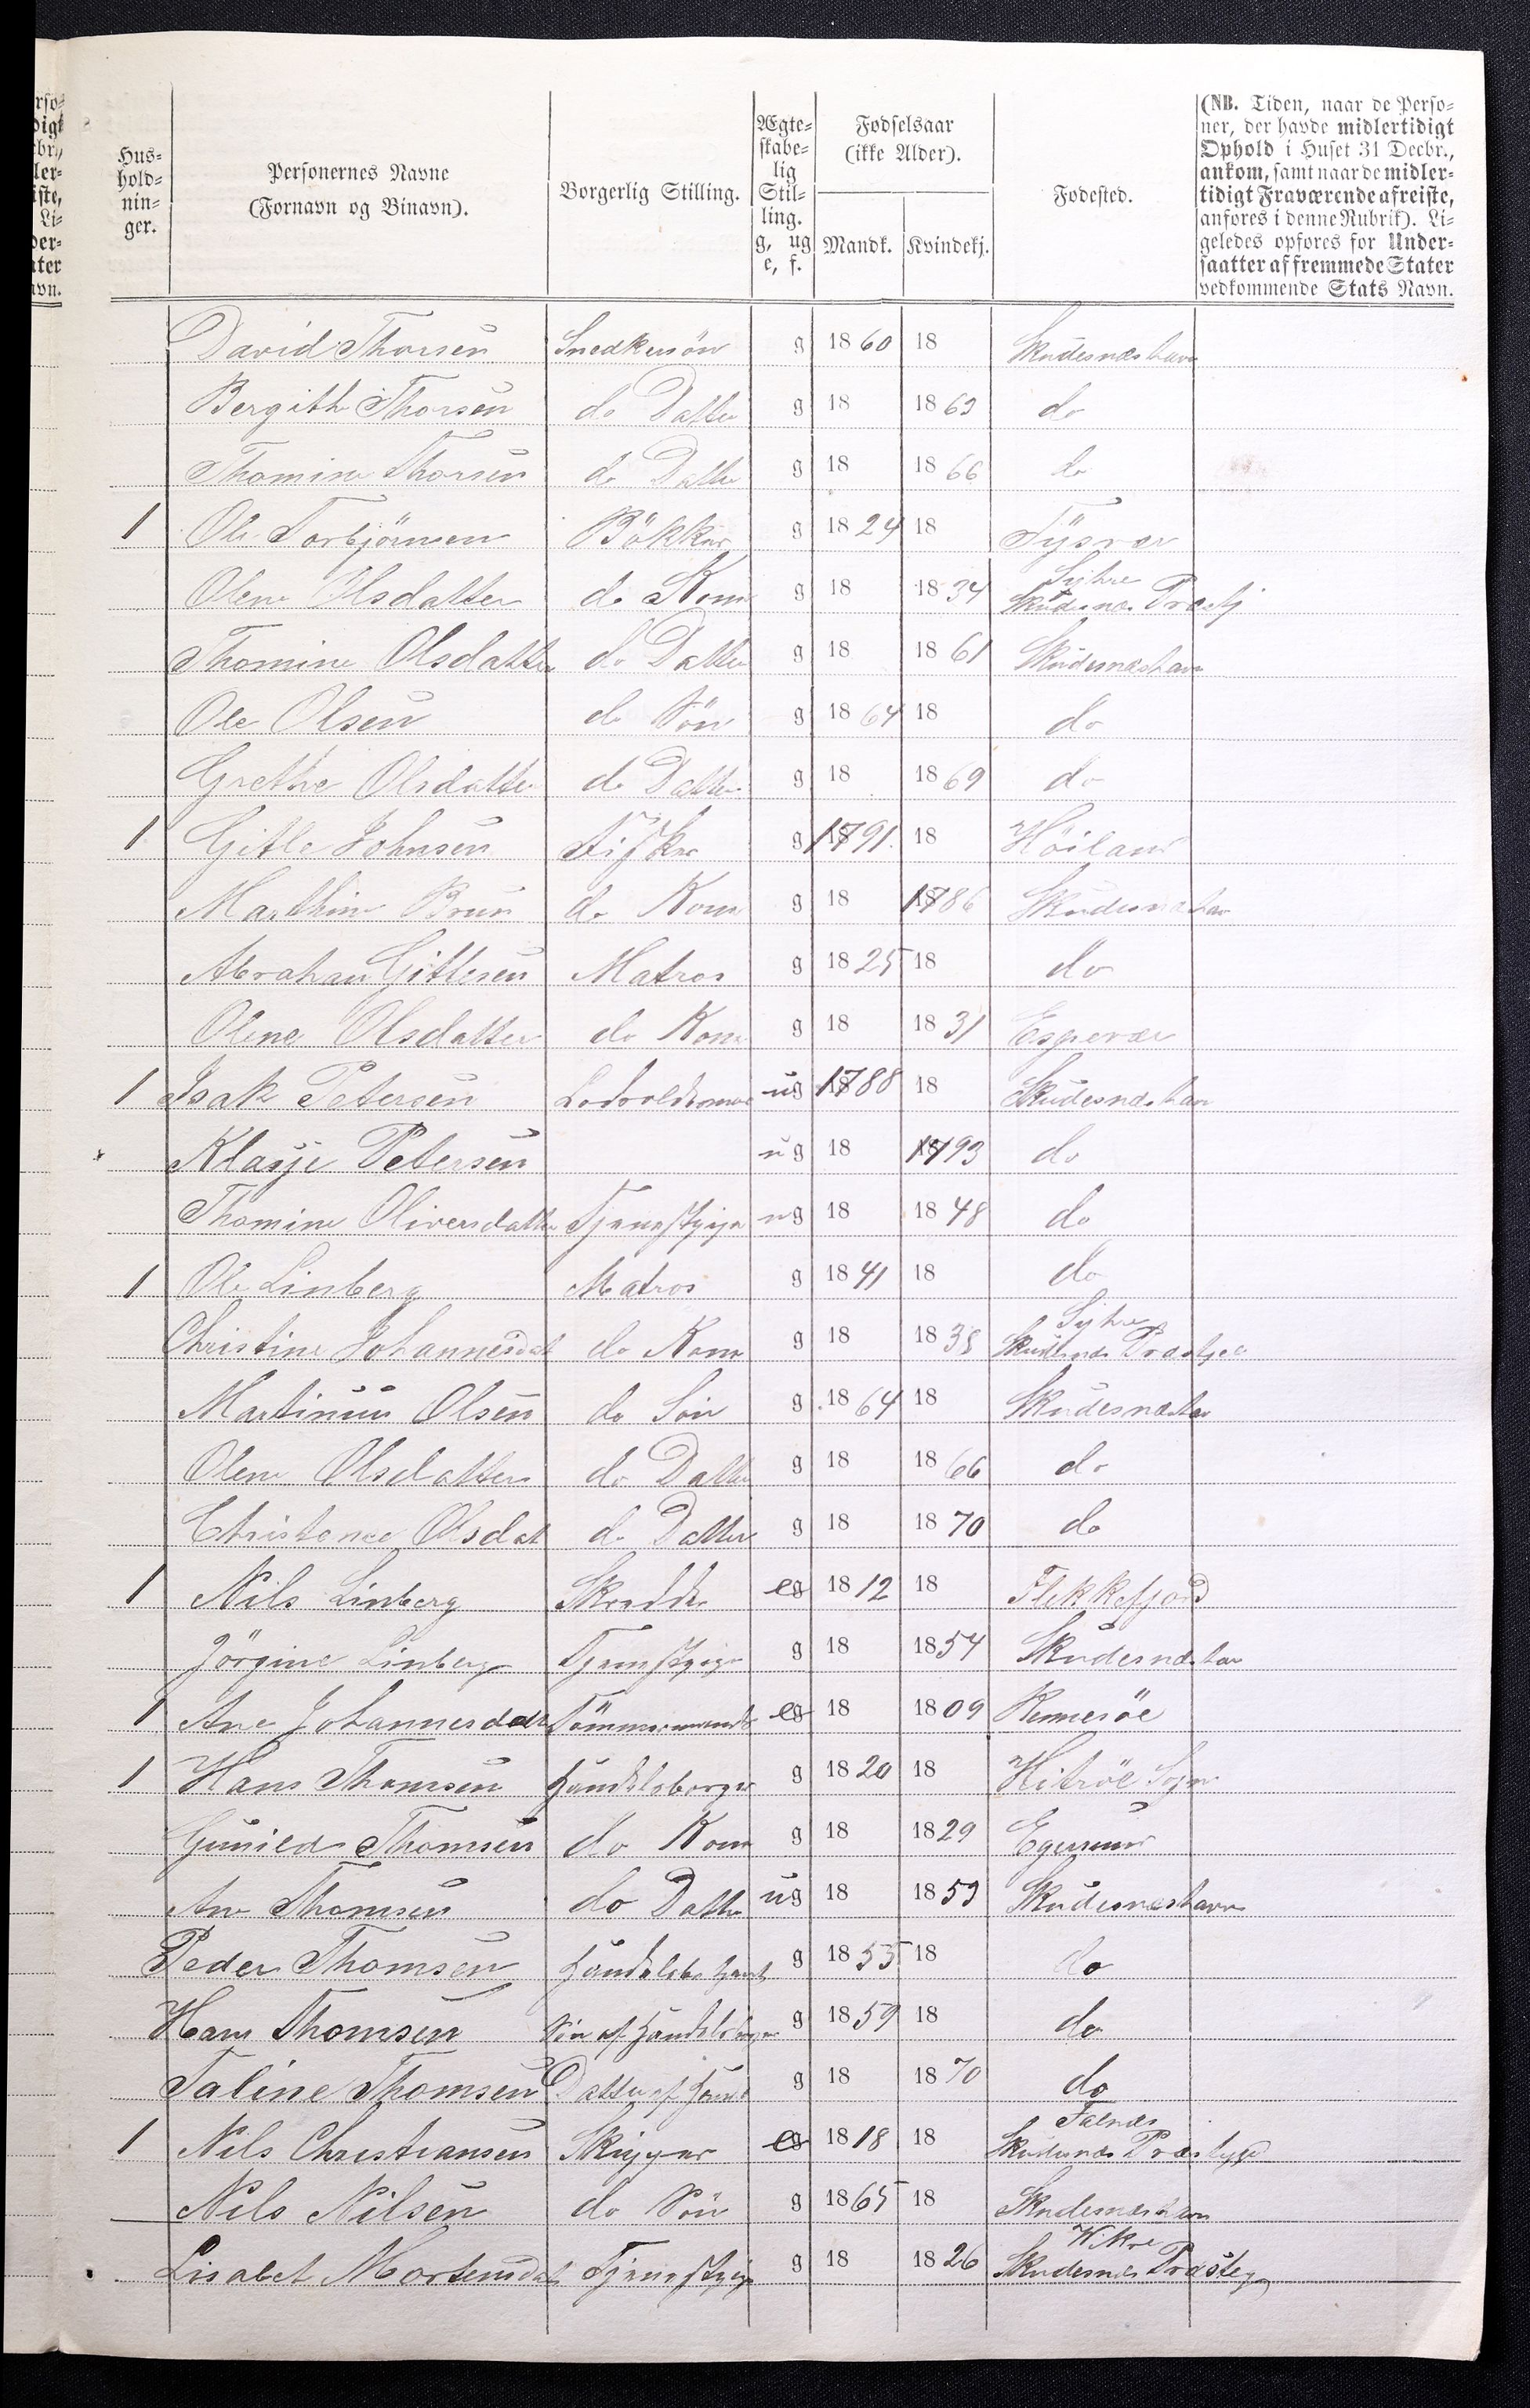 rso=
digt
cbr.,
ler=
iste,
Li=
der=
ater
avn.
Hus=
hold=
nin=
ger.
Personernes Navne
(Fornavn og Binavn).
Borgerlig Stilling.
Ægte=
skabe=
lig
Stil=
ling.
g, ug
e, f.
Fødselsaar
(ikke Alder).
Mandk. Kvindekj.
Fødested.
(NB. Tiden, naar de Perso=
ner, der havde midlertidigt
Ophold i Huset 31 Decbr.,
ankom, samt naar de midler=
tidigt Fraværende afreiste,
anføres i denne Rubrik). Li=
geledes opføres for Under=
saatter af fremmede Stater
vedkommende Stats Navn.
David Thorsen Snedkersön g 1860 18 Skudesnæshavn
Bergith Thorsen do Datter g 18 1863 do
Thomine Thorsen do Datter g 18 1866 do
1 Ole Torbjörnsen Bökker g 1824 18 Tysvær
Syhre
Olene Olsdatter do Kone g 18 1834 Skudesnæs Præstj
Thomine Olsdatter do Datter g 18 1861 Skudesnæshavn
Ole Olsen do Sön g 1864 18 do
Grethe Olsdatter do Datter g 18 1869 do
1 Gitle Johnsen Fisker g 1791 18 Höiland
Marthine Brun do Kone g 18 1786 Skudesnæshav
Abraham Gitlesen Matros g 1825 18 do
Olene Olsdatter do Kone g 18 1831 Espevær
1 Isak Petersen ug 1788 18 Skudesnæshavn
Klasje Petersen ug 18 1793 do
Thomine Oliversdatter Tjenestpige ug 18 1848 do
1 Ole Linberg Matros g 1841 18 do
Syhre
Christine Johannesdat do Kone g 18 1838 Skudesnæs Præstjee
Martinus Olsen do Sön g 1864 18 Skudesnæshav
Olene Olsdatter do Datter g 18 1866 do
Christence Olsdat do Datter g 18 1870 do
1 Nils Linberg Skrædder e 1812 18 Flekkefjord
Jörgine Linberg Tjenestpige g 18 1854 Skudesnæshav
1 Ane Johannesdat Tömmermands e 18 1809 Rennesöe
1 Hans Thomsen Handelsborger g 1820 18 Hitröe Sogn
Gunild Thomsen do Kone g 18 1829 Egersund
Ane Thomsen do Datter ug 18 1853 Skudesnæshavn
Peder Thomsen g 1855 18 do
Hans Thomsen Sön af Handelsborger g 1859 18 do
Taline Thomsen Datter af Handl g 18 1870 do
Falnæs
1 Nils Christiansen Skipper e 1818 18 Skudesnæs Præstegje
Nils Nilsen do Sön g 1865 18 Skudesnæshavn
Wikre
Lisabet Mortensdat Tjenestpige g 18 1826 Skudesnæs Præsteg